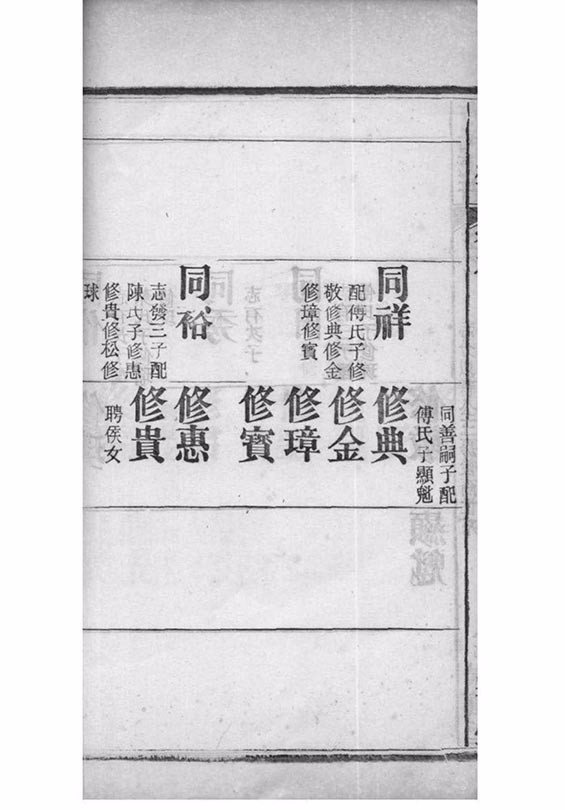 同祥
配傅氏子修
敬修典修金
修璋修賓
同裕
志發三子配
陳氏子修惠
修貴修松修
球
同善嗣子配
傅氏子顯魁
修典
修金
修璋
修賓
修惠
修貴
聘侯女